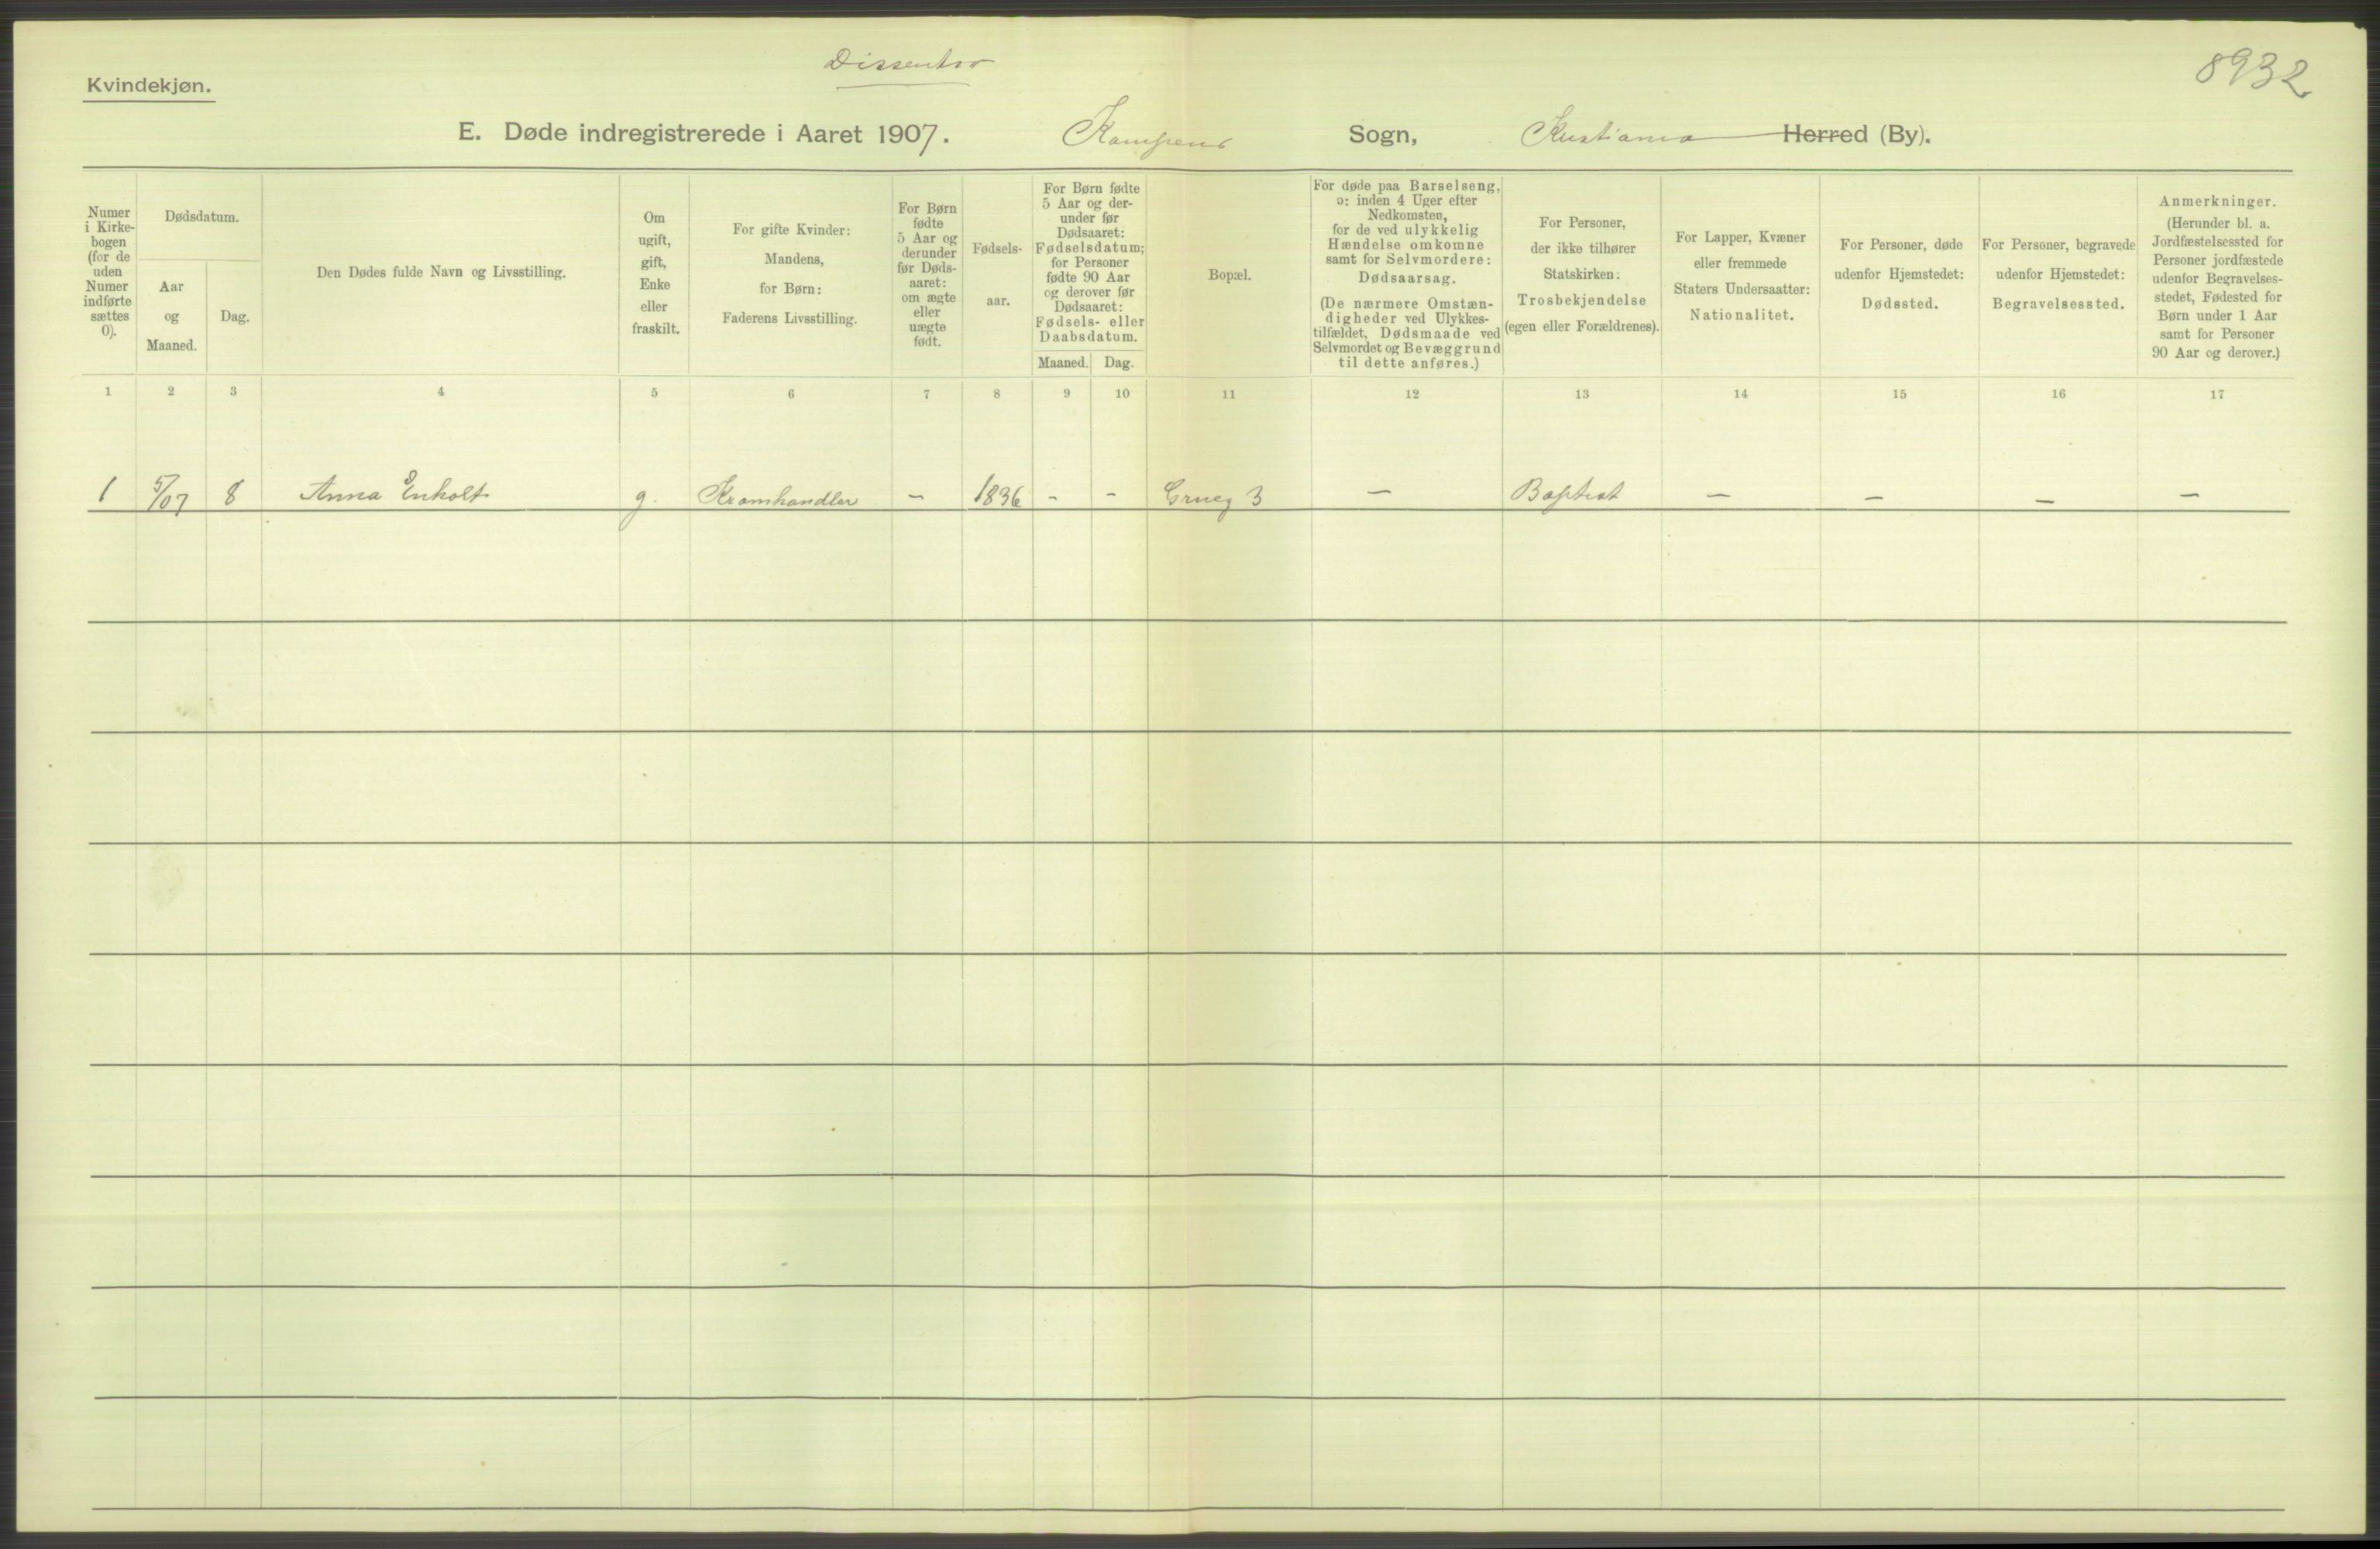 Dissenter
8932
Kvindekjøn.
E. Døde indregistrerede i Aaret 1907. Kampens Sogn, Kristiania Herred (By).
Numer
i Kirke-
bogen
(for de
uden
Numer
indførte
sættes
0).
Dødsdatum.
Aar
og
Maaned.
Dag.
Den Dødes fulde Navn og Livsstilling.
Om
ugift,
gift,
Enke
eller
fraskilt.
For gifte Kvinder:
Mandens,
for Børn:
Faderens Livsstilling.
For Børn
fødte
5 Aar og
derunder
før Døds-
aaret:
om ægte
eller
uægte
født.
Fødsels-
aar.
For Børn fødte
5 Aar og der-
under før
Dødsaaret:
Fødselsdatum;
for Personer
fødte 90 Aar
og derover før
Dødsaaret:
Fødsels- eller
Daabsdatum.
Maaned. Dag.
Bopæl.
For døde paa Barselseng,
ɔ: inden 4 Uger efter
Nedkomsten,
for de ved ulykkelig
Hændelse omkomne
samt for Selvmordere:
Dødsaarsag.
(De nærmere Omstæn-
digheder ved Ulykkes-
tilfældet, Dødsmaade ved
Selvmordet og Bevæggrund
til dette anføres.)
For Personer,
der ikke tilhører
Statskirken:
Trosbekjendelse
(egen eller Forældrenes).
For Lapper, Kvæner
eller fremmede
Staters Undersaatter:
Nationalitet.
For Personer, døde
udenfor Hjemstedet:
Dødssted.
For Personer, begravede
udenfor Hjemstedet:
Begravelsessted.
Anmerkninger.
(Herunder bl. a.
Jordfæstelsessted for
Personer jordfæstede
udenfor Begravelses-
stedet, Fødested for
Børn under 1 Aar
samt for Personer
90 Aar og derover.)
1 2 3 4 5 6 7 8 9 10 11 12 13 14 15 16 17
1 5/07 8 Anna Enholt g. Kramhandler — 1836 - - Grueg 3 — Baptist — — — —